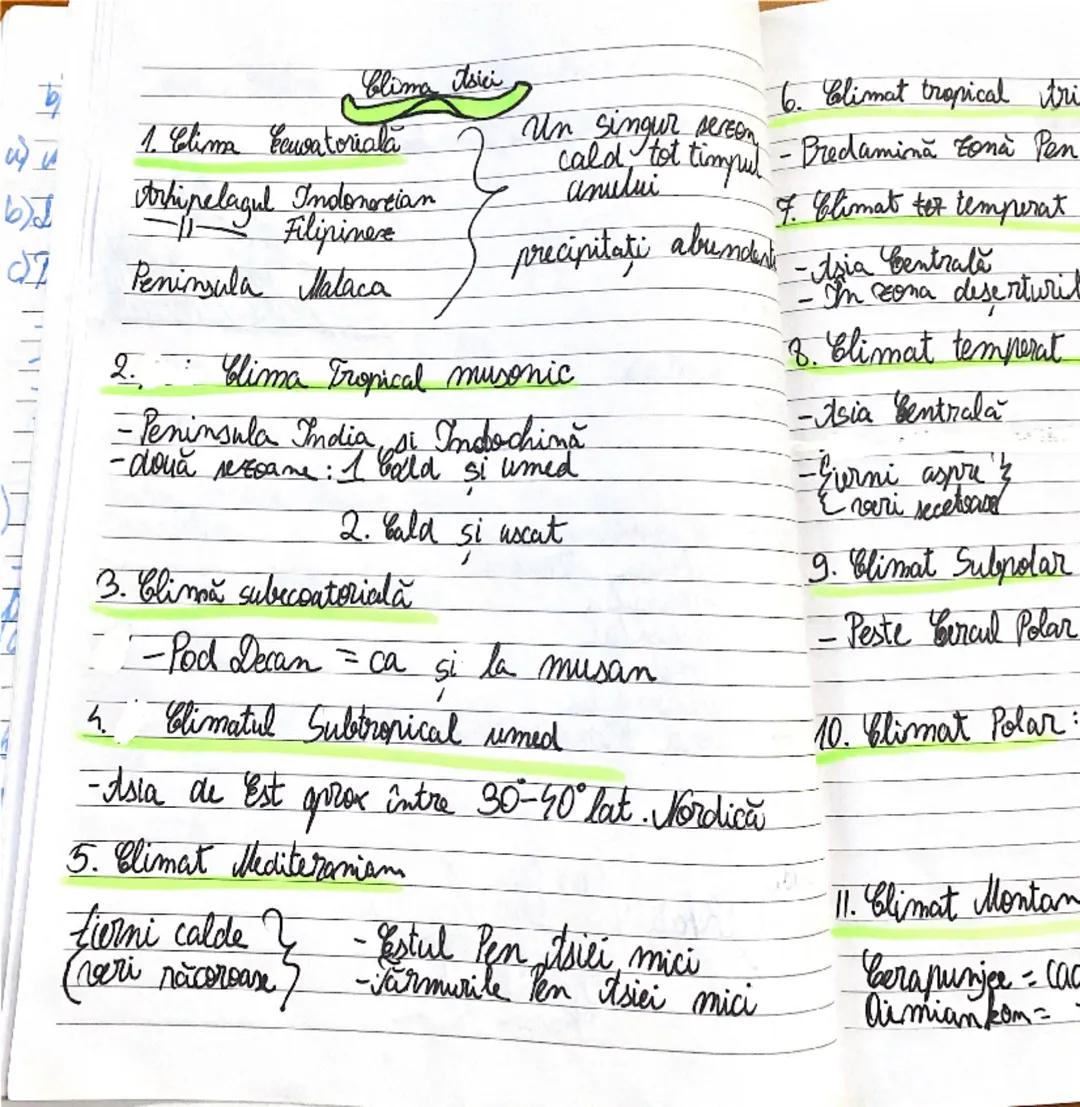 Clima Asiei
1. Clima Ecuatorială
Arhipelagul Indonezian
—11— Filipinez
Peninsula Malaca
Un singur sezon
cald tot timpul
anului
precipitați abundente
2. Clima Tropical musonic
- Peninsula India și Indochină
- două sezoane: 1 Cald și umed
2. Cald și uscat
3. Climă subecoatorială
- Pod Decan = ca și la musan
4. Climatul Subtropical umed
- Asia de Est aprox între 30°-40° lat. Nordică
5. Climat Mediteraniam
Eierni calde
veri răcoroase
- Estul Pen Asiei mici
- Țărmurile Pen Asiei mici
6. Climat tropical Ari
- Predamină zonă Pen
7. Climat temperat
- Asia Centrală
- În zona deșerturil
8. Climat temperat
- Asia Centrală
- Eierni aspre
veri secetoase
9. Climat Subpolar
- Peste Cercul Polar
10. Climat Polar:
11. Climat Montan
Cerapunjee = Cac
Oimiankom =
a)
b)
c)